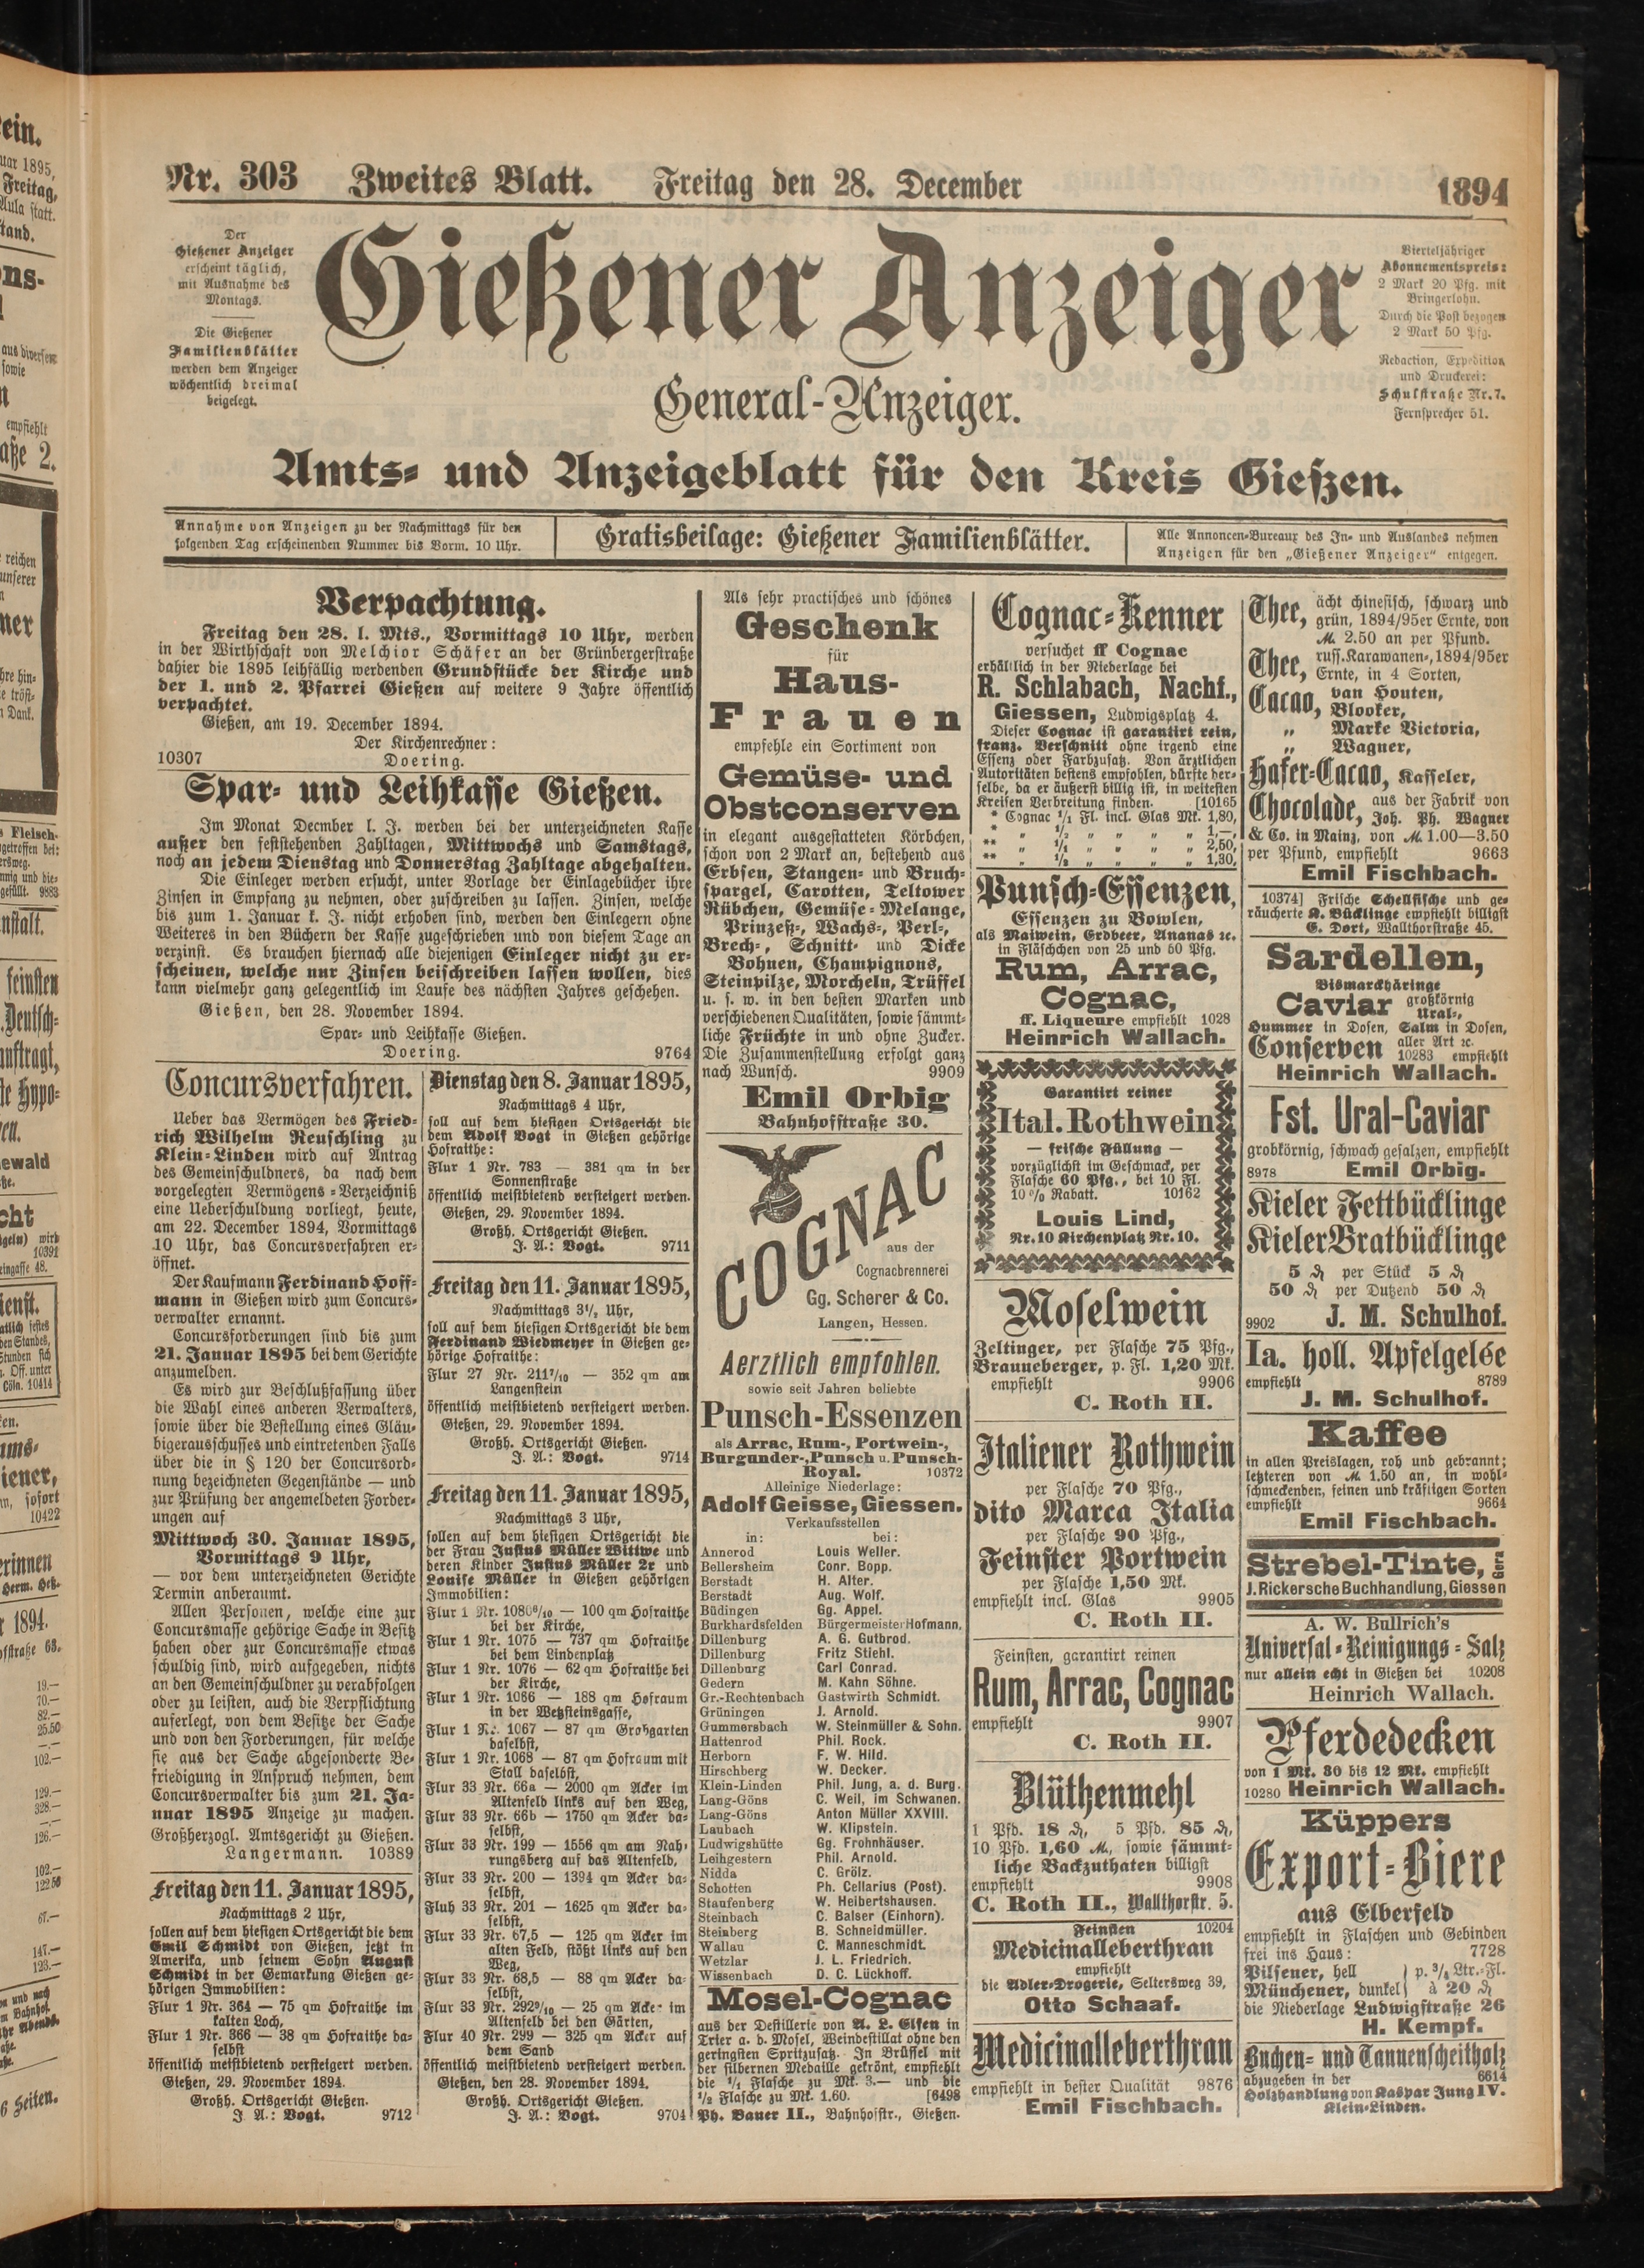 Nr. 303 Zweites Blatt. Freitag den 28. December 1894
Der
Gießener Anzeiger
erscheint täglich,
mit Ausnahme des
Montags.
Die Gießener
Familienblätter
werden dem Anzeiger
wöchentlich dreimal
beigelegt.
Gießener Anzeiger
General-Anzeiger.
Vierteljähriger
Abonnementspreis:
2 Mark 20 Pfg. mit
Bringerlohn.
Durch die Post bezogen
2 Mark 50 Pfg.
Redaction, Expedition
und Druckerei:
Schulstraße Nr. 7.
Fernsprecher 51.
Amts- und Anzeigeblatt für den Kreis Gießen.
Annahme von Anzeigen zu der Nachmittags für den
folgenden Tag erscheinenden Nummer bis Vorm. 10 Uhr.
Gratisbeilage: Gießener Familienblätter.
Alle Annoncen-Bureaux des In- und Auslandes nehmen
Anzeigen für den „Gießener Anzeiger“ entgegen.
Verpachtung.
Freitag den 28. l. Mts., Vormittags 10 Uhr, werden
in der Wirthschaft von Melchior Schäfer an der Grünbergerstraße
dahier die 1895 leihfällig werdenden Grundstücke der Kirche und
der 1. und 2. Pfarrei Gießen auf weitere 9 Jahre öffentlich
verpachtet.
Gießen, am 19. December 1894.
Der Kirchenrechner:
10307 Doering.
Spar- und Leihkasse Gießen.
Im Monat Decmber l. J. werden bei der unterzeichneten Kasse
außer den feststehenden Zahltagen, Mittwochs und Samstags,
noch an jedem Dienstag und Donnerstag Zahltage abgehalten.
Die Einleger werden ersucht, unter Vorlage der Einlagebücher ihre
Zinsen in Empfang zu nehmen, oder zuschreiben zu lassen. Zinsen, welche
bis zum 1. Januar k. J. nicht erhoben sind, werden den Einlegern ohne
Weiteres in den Büchern der Kasse zugeschrieben und von diesem Tage an
verzinst. Es brauchen hiernach alle diejenigen Einleger nicht zu er-
scheinen, welche nur Zinsen beischreiben lassen wollen, dies
kann vielmehr ganz gelegentlich im Laufe des nächsten Jahres geschehen.
Gießen, den 28. November 1894.
Spar- und Leihkasse Gießen.
Doering. 9764
Concursverfahren.
Ueber das Vermögen des Fried-
rich Wilhelm Reuschling zu
Klein-Linden wird auf Antrag
des Gemeinschuldners, da nach dem
vorgelegten Vermögens-Verzeichniß
eine Ueberschuldung vorliegt, heute,
am 22. December 1894, Vormittags
10 Uhr, das Concursverfahren er-
öffnet.
Der Kaufmann Ferdinand Hoff-
mann in Gießen wird zum Concurs-
verwalter ernannt.
Concursforderungen sind bis zum
21. Januar 1895 bei dem Gerichte
anzumelden.
Es wird zur Beschlußfassung über
die Wahl eines anderen Verwalters,
sowie über die Bestellung eines Gläu-
bigerausschusses und eintretenden Falls
über die in § 120 der Concursord-
nung bezeichneten Gegenstände — und
zur Prüfung der angemeldeten Forder-
ungen auf
Mittwoch 30. Januar 1895,
Vormittags 9 Uhr,
— vor dem unterzeichneten Gerichte
Termin anberaumt.
Allen Personen, welche eine zur
Concursmasse gehörige Sache in Besitz
haben oder zur Concursmasse etwas
schuldig sind, wird aufgegeben, nichts
an den Gemeinschuldner zu verabfolgen
oder zu leisten, auch die Verpflichtung
auferlegt, von dem Besitze der Sache
und von den Forderungen, für welche
sie aus der Sache abgesonderte Be-
friedigung in Anspruch nehmen, dem
Concursverwalter bis zum 21. Ja-
nuar 1895 Anzeige zu machen.
Großherzogl. Amtsgericht zu Gießen.
Langermann. 10389
Freitag den 11. Januar 1895,
Nachmittags 2 Uhr,
sollen auf dem hiesigen Ortsgericht die dem
Emil Schmidt von Gießen, jetzt in
Amerika, und seinem Sohn August
Schmidt in der Gemarkung Gießen ge-
hörigen Immobilien:
Flur 1 Nr. 364 — 75 qm Hofraithe im
kalten Loch,
Flur 1 Nr. 366 — 38 qm Hofraithe da-
selbst
öffentlich meistbietend versteigert werden.
Gießen, 29. November 1894.
Großh. Ortsgericht Gießen.
J. A.: Vogt. 9712
Dienstag den 8. Januar 1895,
Nachmittags 4 Uhr,
soll auf dem hiesigen Ortsgericht die
dem Adolf Vogt in Gießen gehörige
Hofraithe:
Flur 1 Nr. 783 — 381 qm in der
Sonnenstraße
öffentlich meistbietend versteigert werden.
Gießen, 29. November 1894.
Großh. Ortsgericht Gießen.
J. A.: Vogt. 9711
Freitag den 11. Januar 1895,
Nachmittags 3½ Uhr,
soll auf dem hiesigen Ortsgericht die dem
Ferdinand Wiedmeyer in Gießen ge-
hörige Hofraithe:
Flur 27 Nr. 211⁷/₁₀ — 352 qm am
Langenstein
öffentlich meistbietend versteigert werden.
Gießen, 29. November 1894.
Großh. Ortsgericht Gießen.
J. A.: Vogt. 9714
Freitag den 11. Januar 1895,
Nachmittags 3 Uhr,
sollen auf dem hiesigen Ortsgericht die
der Frau Justus Müller Wittwe und
deren Kinder Justus Müller 2r und
Louise Müller in Gießen gehörigen
Immobilien:
Flur 1 Nr. 1080⁶/₁₀ — 100 qm Hofraithe
bei der Kirche,
Flur 1 Nr. 1075 — 737 qm Hofraithe
bei dem Lindenplatz
Flur 1 Nr. 1076 — 62 qm Hofraithe bei
der Kirche,
Flur 1 Nr. 1086 — 188 qm Hofraum
in der Wetzsteinsgasse,
Flur 1 Nr. 1067 — 87 qm Grabgarten
daselbst,
Flur 1 Nr. 1068 — 87 qm Hofraum mit
Stall daselbst,
Flur 33 Nr. 66a — 2000 qm Acker im
Altenfeld links auf den Weg,
Flur 33 Nr. 66b — 1750 qm Acker da-
selbst,
Flur 33 Nr. 199 — 1556 qm am Nah-
rungsberg auf das Altenfeld,
Flur 33 Nr. 200 — 1394 qm Acker da-
selbst,
Fluh 33 Nr. 201 — 1625 qm Acker da-
selbst,
Flur 33 Nr. 67,5 — 125 qm Acker im
alten Feld, stößt links auf den
Weg,
Flur 33 Nr. 68,5 — 88 qm Acker da-
selbst,
Flur 33 Nr. 292⁹/₁₀ — 25 qm Acker im
Altenfeld bei den Gärten,
Flur 40 Nr. 299 — 325 qm Acker auf
dem Sand
öffentlich meistbietend versteigert werden.
Gießen, den 28. November 1894.
Großh. Ortsgericht Gießen.
J. A.: Vogt. 9704
Als sehr practisches und schönes
Geschenk
für
Haus-
Frauen
empfehle ein Sortiment von
Gemüse- und
Obstconserven
in elegant ausgestatteten Körbchen,
schon von 2 Mark an, bestehend aus
Erbsen, Stangen- und Bruch-
spargel, Carotten, Teltower
Rübchen, Gemüse-Melange,
Prinzeß-, Wachs-, Perl-,
Brech-, Schnitt- und Dicke
Bohnen, Champignons,
Steinpilze, Morcheln, Trüffel
u. s. w. in den besten Marken und
verschiedenen Qualitäten, sowie sämmt-
liche Früchte in und ohne Zucker.
Die Zusammenstellung erfolgt ganz
nach Wunsch. 9909
Emil Orbig
Bahnhofstraße 30.
COGNAC
aus der
Cognacbrennerei
Gg. Scherer & Co.
Langen, Hessen.
Aerztlich empfohlen.
sowie seit Jahren beliebte
Punsch-Essenzen
als Arrac, Rum-, Portwein-,
Burgunder-, Punsch u. Punsch-
Royal. 10372
Alleinige Niederlage:
Adolf Geisse, Giessen.
Verkaufsstellen
in: bei:
Annerod Louis Weller.
Bellersheim Conr. Bopp.
Berstadt H. Alter.
Berstadt Aug. Wolf.
Büdingen Gg. Appel.
Burkhardsfelden Bürgermeister Hofmann.
Dillenburg A. G. Gutbrod.
Dillenburg Fritz Stiehl.
Dillenburg Carl Conrad.
Gedern M. Kahn Söhne.
Gr.-Rechtenbach Gastwirth Schmidt.
Grüningen J. Arnold.
Gummersbach W. Steinmüller & Sohn.
Hattenrod Phil. Rock.
Herborn F. W. Hild.
Hirschberg W. Decker.
Klein-Linden Phil. Jung, a. d. Burg.
Lang-Göns C. Weil, im Schwanen.
Lang-Göns Anton Müller XXVIII.
Laubach W. Klipstein.
Ludwigshütte Gg. Frohnhäuser.
Leihgestern Phil. Arnold.
Nidda C. Grölz.
Schotten Ph. Cellarius (Post).
Staufenberg W. Heibertshausen.
Steinbach C. Balser (Einhorn).
Steinberg B. Schneidmüller.
Wallau C. Manneschmidt.
Wetzlar J. L. Friedrich.
Wissenbach D. C. Lückhoff.
Mosel-Cognac
aus der Destillerie von A. L. Elsen in
Trier a. d. Mosel, Weindestillat ohne den
geringsten Spritzusatz. In Brüssel mit
der silbernen Medaille gekrönt, empfiehlt
die ¹/₁ Flasche zu Mk. 3.— und die
½ Flasche zu Mk. 1.60. [6498
Ph. Bauer II., Bahnhofstr., Gießen.
Cognac-Kenner
versuchet ff Cognac
erhältlich in der Niederlage bei
R. Schlabach, Nachf.,
Giessen, Ludwigsplatz 4.
Dieser Cognac ist garantirt rein,
franz. Verschnitt ohne irgend eine
Essenz oder Farbzusatz. Von ärztlichen
Autoritäten bestens empfohlen, dürfte der-
selbe, da er äußerst billig ist, in weitesten
Kreisen Verbreitung finden. [10165
* Cognac ¹/₁ Fl. incl. Glas Mk. 1,80,
* „ ½ „ „ „ „ 1,—,
** „ ¹/₁ „ „ „ „ 2,50,
** „ ½ „ „ „ „ 1,30,
Punsch-Essenzen,
Essenzen zu Bowlen,
als Maiwein, Erdbeer, Ananas ꝛc.
in Fläschchen von 25 und 50 Pfg.
Rum, Arrac,
Cognac,
ff. Liqueure empfiehlt 1028
Heinrich Wallach.
Garantirt reiner
Ital. Rothwein
— frische Füllung —
vorzüglichst im Geschmack, per
Flasche 60 Pfg., bei 10 Fl.
10% Rabatt. 10162
Louis Lind,
Nr. 10 Kirchenplatz Nr. 10.
Moselwein
Zeltinger, per Flasche 75 Pfg.,
Brauneberger, p. Fl. 1,20 Mk.
empfiehlt 9906
C. Roth II.
Italiener Rothwein
per Flasche 70 Pfg.,
dito Marca Italia
per Flasche 90 Pfg.,
Feinster Portwein
per Flasche 1,50 Mk.
empfiehlt incl. Glas 9905
C. Roth II.
Feinsten, garantirt reinen
Rum, Arrac, Cognac
empfiehlt 9907
C. Roth II.
Blüthenmehl
1 Pfd. 18 ₰, 5 Pfd. 85 ₰,
10 Pfd. 1,60 ℳ, sowie sämmt-
liche Backzuthaten billigst
empfiehlt 9908
C. Roth II., Wallthorstr. 5.
Feinsten 10204
Medicinalleberthran
empfiehlt
die Adler-Drogerie, Seltersweg 39,
Otto Schaaf.
Medicinalleberthran
empfiehlt in bester Qualität 9876
Emil Fischbach.
Thee, ächt chinesisch, schwarz und
grün, 1894/95er Ernte, von
ℳ 2.50 an per Pfund.
Thee, russ. Karawanen-, 1894/95er
Ernte, in 4 Sorten,
Cacao, van Houten,
Blooker,
„ Marke Victoria,
„ Wagner,
Hafer-Cacao, Kasseler,
Chocolade, aus der Fabrik von
Joh. Ph. Wagner
& Co. in Mainz, von ℳ 1.00—3.50
per Pfund, empfiehlt 9663
Emil Fischbach.
10374] Frische Schellfische und ge-
räucherte K. Bücklinge empfiehlt billigst
E. Dort, Wallthorstraße 45.
Sardellen,
Bismarckhäringe
Caviar großkörnig
Ural-,
Hummer in Dosen, Salm in Dosen,
Conserven aller Art ꝛc.
10283 empfiehlt
Heinrich Wallach.
Fst. Ural-Caviar
grobkörnig, schwach gesalzen, empfiehlt
8978 Emil Orbig.
Kieler Fettbücklinge
Kieler Bratbücklinge
5 ₰ per Stück 5 ₰
50 ₰ per Dutzend 50 ₰
9902 J. M. Schulhof.
Ia. holl. Apfelgelée
empfiehlt 8789
J. M. Schulhof.
Kaffee
in allen Preislagen, roh und gebrannt;
letzteren von ℳ 1.50 an, in wohl-
schmeckenden, feinen und kräftigen Sorten
empfiehlt 9664
Emil Fischbach.
Strebel-Tinte, Gera
J. Rickersche Buchhandlung, Giessen
A. W. Bullrich's
Universal-Reinigungs-Salz
nur allein echt in Gießen bei 10208
Heinrich Wallach.
Pferdedecken
von 1 Mk. 80 bis 12 Mk. empfiehlt
10280 Heinrich Wallach.
Küppers
Export-Biere
aus Elberfeld
empfiehlt in Flaschen und Gebinden
frei ins Haus: 7728
Pilsener, hell p. ³/₈ Ltr.-Fl.
Münchener, dunkel à 20 ₰
die Niederlage Ludwigstraße 26
H. Kempf.
Buchen- und Tannenscheitholz
abzugeben in der 6614
Holzhandlung von Kaspar Jung IV.
Klein-Linden.